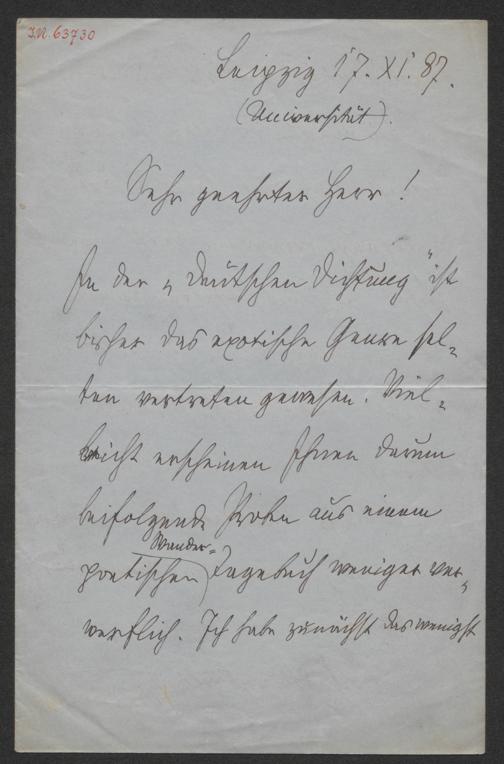 I.N. 63730
Leipzig 17. XI. 87.
(Universität).
Sehr geehrter Herr!
In der „Deutschen Dichtung" ist
bisher das exotische Genre sel-
ten vertreten gewesen. Viel-
leicht erscheinen Ihnen darum
beifolgende Proben aus einem
Wander-
poetischen Tagebuch weniger ver-
werflich. Ich habe zunächst das wenigst